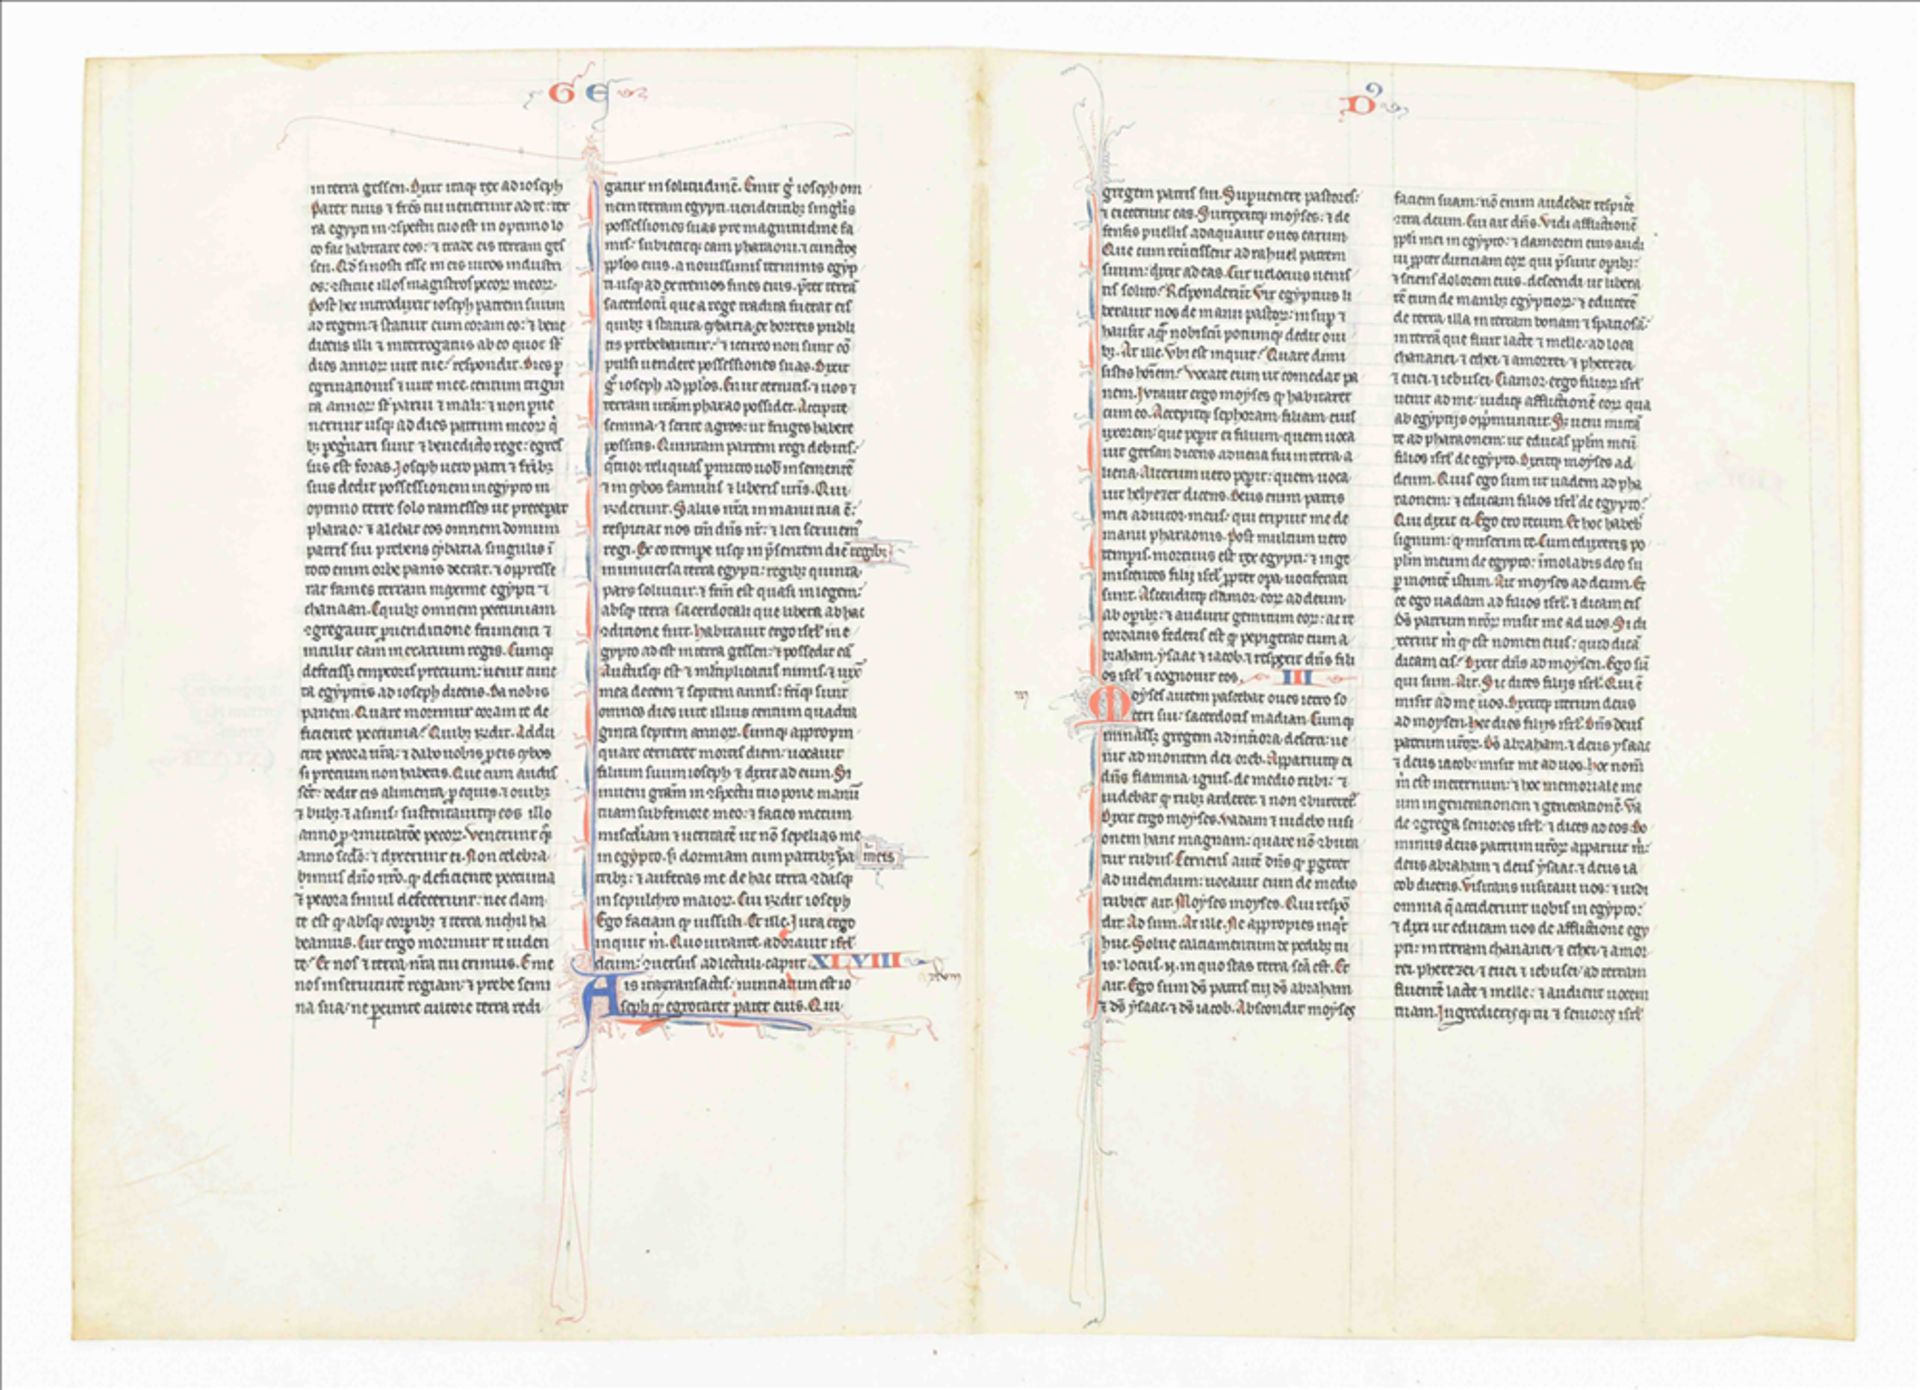 G E
in terra gessen. Dixit itaq; rex ad ioseph
Pater tuus ⁊ fr̄es tui uenerunt ad te: ter
ra egypti in ɔspectu tuo est in optimo lo
co fac habitare eos: ⁊ trade eis terram ges
sen. Qd̄ si nosti esse in eis uiros industri
os: ɔstitue illos magistros pecoꝝ meoꝝ.
Post hec introduxit ioseph patrem suum
ad regem: ⁊ statuit eum coram eo: ⁊ bene
dicens illi ⁊ interrogatus ab eo quot st̄
dies annoꝝ uite tue: respondit. Dies ꝑ
egrinationis ⁊ uite mee. centum trigin
ta annoꝝ st̄ parui ⁊ mali: ⁊ non ꝑue
nerunt usq; ad dies patrum meoꝝ q̇
bꝫ ꝑeġnati sunt ⁊ benedicto rege: egres
sus est foras. Ioseph uero patri ⁊ frībꝫ
suis dedit possessionem in egypto in
optimo terre solo ramesses ut preceperat
pharao: ⁊ alebat eos omnem domum
patris sui prebens cybaria singulis ī
toto enim orbe panis deerat. ⁊ oppresse
rat fames terram maxime egypti ⁊
chanaan. E quibꝫ omnem pecuniam
ɔgregauit ꝓ uenditione frumenti ⁊
intulit eam in erarium regis. Cumq;
defecisset emptoris precium: uenit cunc
ta egyptus ad ioseph dicens. Da nobis
panem. Quare morimur coram te de
ficiente peccunia? Quibꝫ r̄ndit. Addu
cite pecora ur̄a: ⁊ dabo uobis ꝓ eis cybos
si precium non habetis. Que cum addux
ist: dedit eis alimenta ꝓ equis. ⁊ ouibꝫ
⁊ bubꝫ ⁊ asinis: sustentauitq; eos illo
anno ꝓ ɔmutatōe pecoꝝ. Venerunt q̄
anno scd̄o: ⁊ dixerunt ei. Non celebra
bimus dn̄o nr̄o. q̄ deficiente peccunia
⁊ pecora simul defecerunt: nec clam
te est q̄ absq; corpibꝫ ⁊ terra nichil ha
beamus. Cur ergo morimur te uiden
te? Et nos ⁊ terra nr̄a tui erimus. Eme
nos in seruitute regiam: ⁊ prebe semi
na sua: ne ꝑeunte cultore terra redi
gatur in solitudinē. Emit g̊ ioseph om
nem terram egypti. uendentibꝫ singlīs
possessiones suas pre magnitudine fa
mis: subiecitq; eam pharaoni. ⁊ cunctos
ppl̄os eius. a nouissimis terminis egyp
ti. usq; ad extremos fines eius. p̄ter terrā
sacerdotū que a rege tradita fuerat eis
quibꝫ ⁊ statuta cybaria. ex horreis publi
cis prebebantur. ⁊ icirco non sunt cō
pulsi uendere possessiones suas. Dixit
g̊ ioseph ad ppl̄os. En ut cernitis ⁊ uos ⁊
terram ur̄am pharao possidet. Accipite
semina ⁊ serite agros: ut fruges habere
possitis. Quintam partem regi debitis:
q̇tuor reliquas ꝑmitto uob̄ in sementē
⁊ in cybos famulis ⁊ liberis ur̄is. Qui
r̄nderunt. Salus nr̄a in manu tua ē:
respiciat nos tm̄ dn̄s nr̄: ⁊ leti seruiem̄
regi. Ex eo tempe usq; in p̄sentem diē
regibꝫ
in uniuersa terra egypti: regibꝫ quinta
pars soluitur. ⁊ fc̄m est quasi in legem:
absq; terra sacerdotali que libera ab hac
ɔditione fuit. Habitauit ergo isrl̄ in e
gypto id est in terra gessen: ⁊ possedit eā
Auctusq; est ⁊ ml̄tiplicatus nimis: ⁊ uix̄
in ea decem ⁊ septem annis: ft̄iq; sunt
omnes dies uite illius centum quadra
ginta septem annoꝝ. Cumq; appropin
quare cerneret mortis diem: uocauit
filium suum ioseph ⁊ dixit ad eum. Si
inueni gr̄am in ɔspectu tuo pone manū
tuam sub femore meo: ⁊ facies mecum
misc̄diam ⁊ ueritatē ut nō sepelias me
in egypto. s; dormiam cum patribꝫ
meis
⁊ auferas me de hac terra ɔdasq;
in sepulchro maioꝝ. Cui r̄ndit ioseph
Ego faciam q̄ iussisti. Et ille. Iura ergo
inquit m̄. Quo iurante. adorauit isrl̄
deum: ɔuersus ad lectuli caput. XLVIII
His ita transactis: nuntiatum est io
seph q̄ egrotaret pater eius. Qui
D 9
gregem patris sui. Supuenere pastores:
⁊ eiecerunt eas. Surrexitq; moyses: ⁊ de
fensis puellis adaquauit oues earum.
Que cum reūtissent ad rahuel patrem
suum: dixit ad eas. Cur uelocius uenis
tis solito? Responderūt. Vir egyptius li
berauit nos de manu pastoꝝ: insup ⁊
hausit aq̄ nobiscū potumq; dedit oui
bꝫ. At ille. Vbi est inquit? Quare dimi
sistis hoīem? Vocate eum ut comedat pa
nem. Iurauit ergo moyses q̄ habitaret
cum eo. Accepitq; sephoram filiam eius
uxorem: que pepit ei filium. quem uoca
uit gersan dicens aduena fui in terra a
liena. Alterum uero pepit: quem uoca
uit helyezer dicens. Deus enim patris
mei adiutor meus: qui eripuit me de
manu pharaonis. Post multum uero
temporis. mortuus est rex egypti: ⁊ inge
miscentes filij isrl̄ ꝓpter opa. uociferati
sunt. Ascenditq; clamor eoꝝ ad deum
ab opibꝫ: ⁊ audiuit gemitum eoꝝ: ac re
cordatus federis est q̄ pepigerat cum a
braham ysaac ⁊ iacob. ⁊ respexit dn̄s fili
os isrl̄ ⁊ cognouit eos. III
Moyses autem pascebat oues ietro so
ceri sui: sacerdotis madian. Cumq;
minasset gregem ad int̄iora deserti: ue
nit ad montem dei oreb. Apparuitq; ei
dn̄s flamma ignis. de medio rubi: ⁊
uidebat q̄ rubꝫ arderet. ⁊ non ɔbureret̄.
Dixit ergo moyses. Vadam ⁊ uidebo uisi
onem hanc magnam: quare nō ɔbura
tur rubus. Cernens autē dn̄s q̄ pgeret
ad uidendum: uocauit eum de medio
rubi ⁊ ait. Moyses moyses. Qui respō
dit. Ad sum. At ille. Ne appropies inq̇t
huc. Solue calciamentum de pedibꝫ tu
is: locus .n. in quo stas terra sc̄a est. Et
ait. Ego sum ds̄ patris tui ds̄ abraham
⁊ ds̄ ysaac: ⁊ ds̄ iacob. Abscondit moyses
faciem suam: nō enim audebat respicē
ɔtra deum. Cui ait dn̄s. Vidi afflictionē
ppl̄i mei in egypto: ⁊ clamorem eius audi
ui ꝓpter duriciam eoꝝ qui p̄sunt opibꝫ:
⁊ sciens dolorem eius. descendi ut libera
rē eum de manibꝫ egyptioꝝ: ⁊ educerē
de terra illa in terram bonam ⁊ spatiosā:
in terrā que fluit lacte ⁊ melle: ad loca
chananei ⁊ ethei ⁊ amorrei ⁊ pherezei
⁊ euei. ⁊ iebusei. Clamor ergo filioꝝ isrl̄
uenit ad me: uidiq; afflictionē eoꝝ qua
ab egyptijs opp̄muntur. S; ueni mittā
te ad pharaonem: ut educas ppl̄m meū
filios isrl̄ de egypto. Dixitq; moyses ad
deum. Quis ego sum ut uadam ad pha
raonem: ⁊ educam filios isrl̄ de egypto?
Qui dixit ei. Ego ero tecum. Et hoc habeb̄
signum: q̄ miserim te. Cum eduxeris po
plm̄ meum de egypto: īmolabis deo su
p montē istum. Ait moyses ad deum. Ec
ce ego uadam ad filios isrl̄. ⁊ dicam eis
Ds̄ patrum ur̄oꝝ misit me ad uos. Si di
xerint m̄ q̄ est nomen eius: quid dicā
dicam eis? Dixit dn̄s ad moysen. Ego sū
qui sum. Ait. Sic dices filijs isrl̄. Qui ē
misit ad me uos. Dixitq; iterum deus
ad moysen. Hec dices filijs isrl̄. Dn̄s deus
patrum ur̄oꝝ. Ds̄ abraham. ⁊ deus ysaac
⁊ deus iacob: misit me ad uos. hoc nom̄
m̄ est in eternum: ⁊ hoc memoriale me
um in generationem ⁊ generationē. Va
de ɔgrega seniores isrl̄: ⁊ dices ad eos. Do
minus deus patrum ur̄oꝝ apparuit m̄:
deus abraham ⁊ deus ysaac. ⁊ deus ia
cob dicens. Visitans uisitaui uos: ⁊ uidi
omnia q̄ acciderunt uobis in egypto:
⁊ dixi ut educam uos de afflictione egy
pti: in terram chananei ⁊ ethei ⁊ amor
rei. pherezei ⁊ euei ⁊ iebusei. ad terram
fluentē lacte ⁊ melle: ⁊ audient uocem
tuam. Ingredierisq; tu ⁊ seniores isrl̄